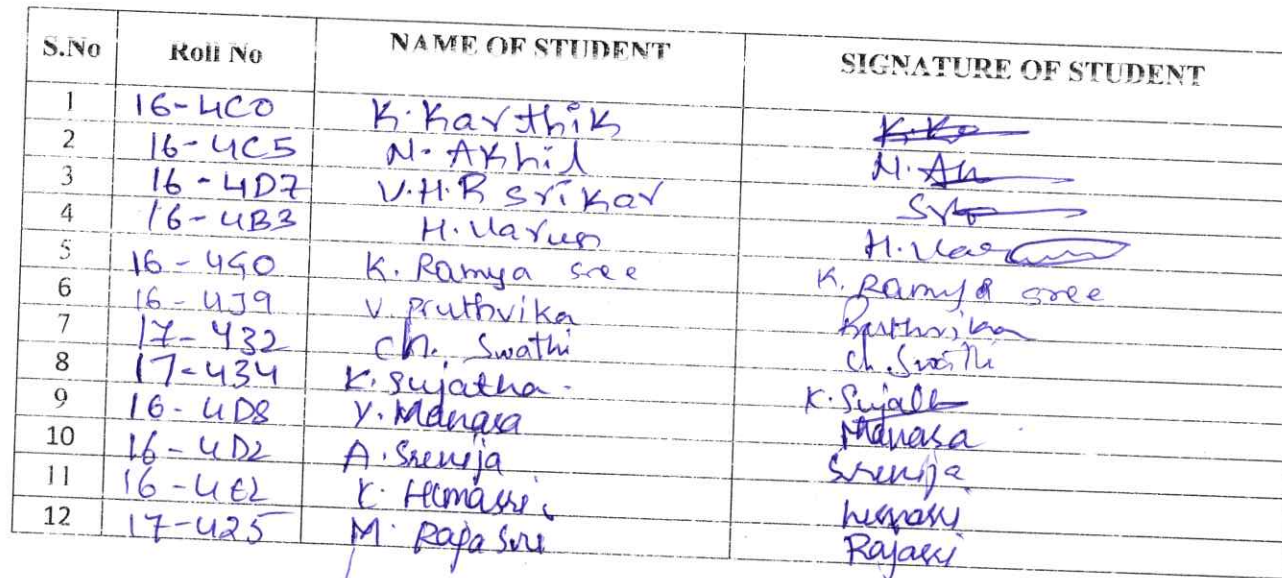 S.No Roll No NAME OF STUDENT SIGNATURE OF STUDENT
1 16-4C0 K. Karthik K.Ka
2 16-4C5 N. Akhil N.Ak
3 16-4D7 V.H.R Srikar
4 16-4B3 H. Varun H. Varun
5 16-4G0 K. Ramya sree K. Ramya sree
6 16-4J9 V. Pruthvika Pruthvika
7 17-432 Ch. Swathi Ch. Swathi
8 17-434 K. Sujatha. K. Sujatha
9 16-4D8 Y. Manasa Manasa
10 16-4D2 A. Srenija Srenija
11 16-4E2 K. Hemasri
12 17-425 M. Rajasri Rajasri